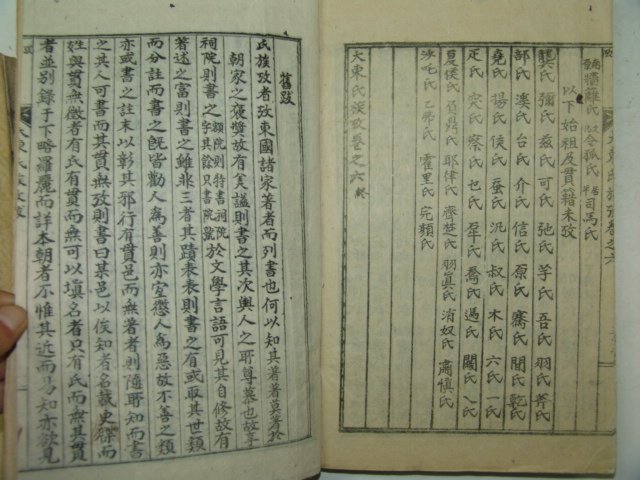 癿籬氏 令狐氏 司馬氏
以下始祖及貫籍未攷
龔氏 彌氏 玆氏 可氏 弛氏 芋氏 吾氏 羽氏 胥氏
部氏 溪氏 台氏 介氏 信氏 原氏 騫氏 間氏 乾氏
堯氏 揚氏 侯氏 蚕氏 汎氏 叔氏 木氏 六氏 一氏
疋氏 突氏 察氏 乜氏 羣氏 喬氏 過氏 閣氏 乀氏
夏侯氏 耶律氏 齊楚氏 羽眞氏 消奴氏 肅愼氏
沙吒氏 乙弗氏 霍里氏 完顔氏
大東氏族攷卷之六終
舊跋
氏族攷者攷東國諸家著者而列書也何以知其著著莫著於
朝家之褒奬故有美諡則書之其次輿人之所尊慕也故享
祠院則書之額院則特書祠院字其餘只書院號於文學言語可見其自修故有
著述之富則書之雖非三者其蹟表表則書之有或取其世類
而分註而書之旣皆勸人爲善則亦宜懲人爲惡故不善之類
亦或書之註末以彰其邪行有貫邑而無著者則隨所知而書
之其人可書而其貫無攷則書曰某邑以俟知者名載史牒而
姓與貫無徵者有氏有貫而無可以塡名者只有氏而無其貫
者並別錄于下略羅麗而詳本朝者不惟其近而易知亦欲見